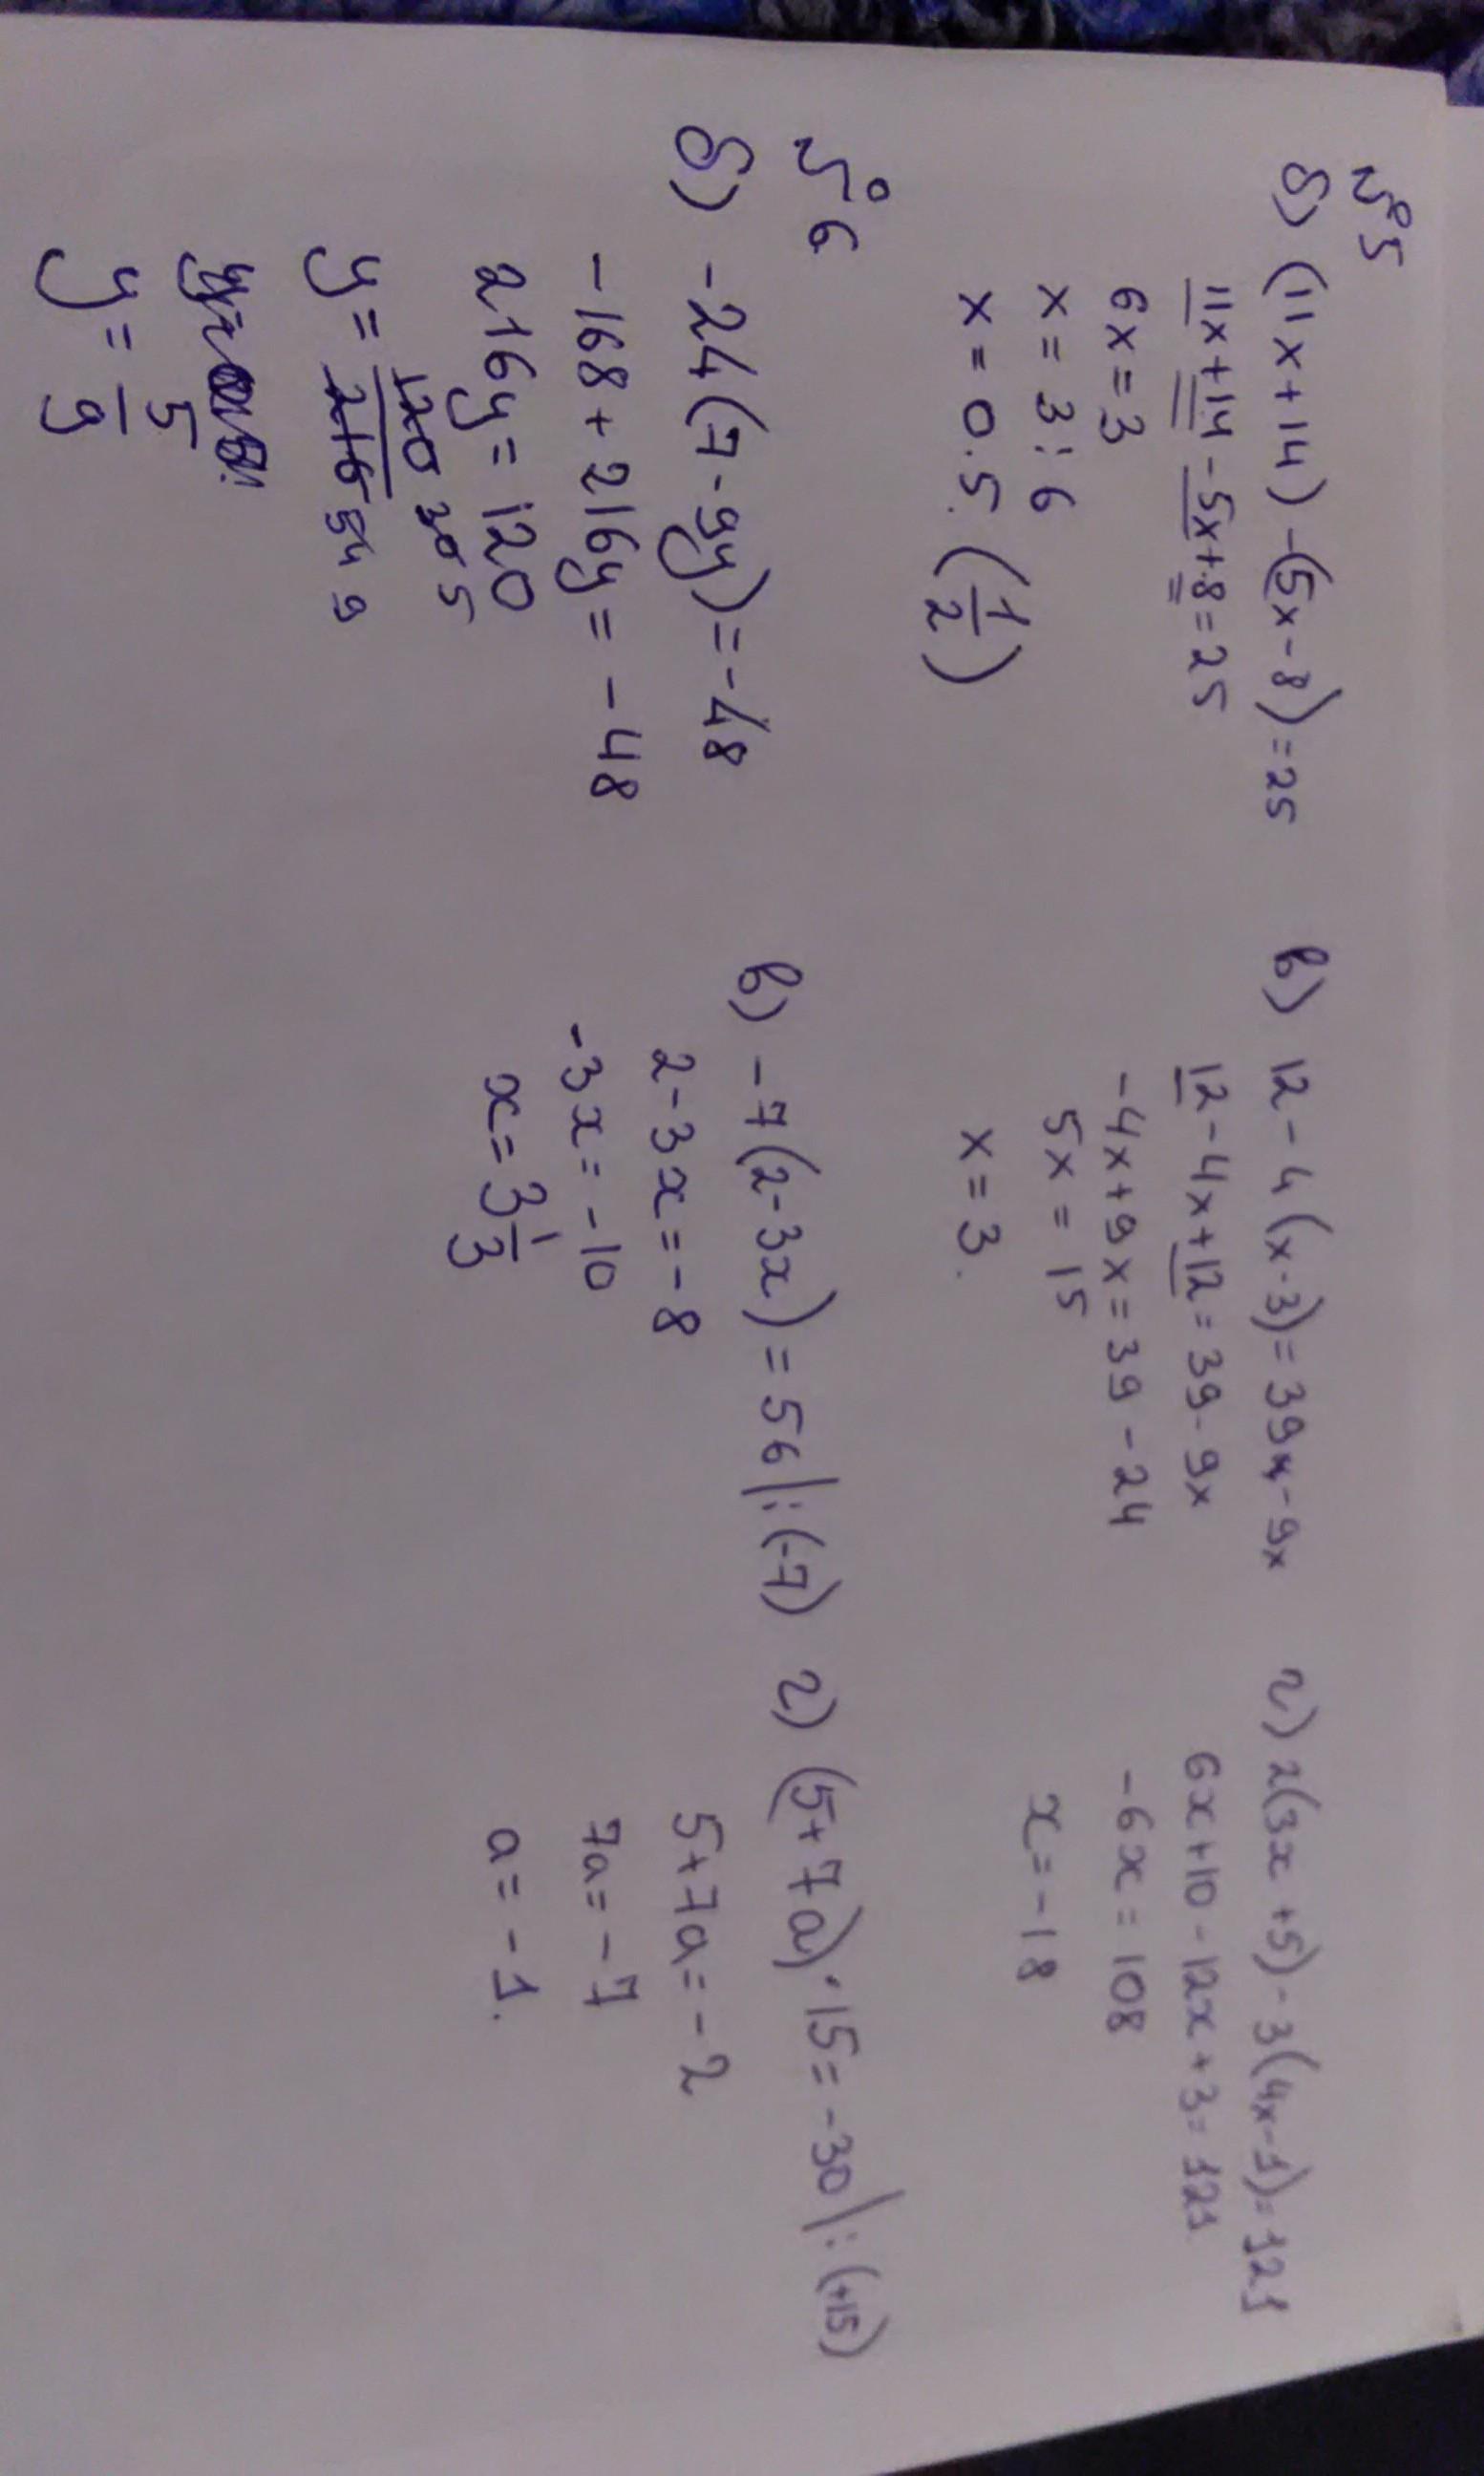 №5
б) (11x+14)-(5x-8)=25
11x+14-5x+8=25
6x=3
x=3:6
x=0.5. (1/2)
в) 12-4(x-3)=39-9x
12-4x+12=39-9x
-4x+9x=39-24
5x=15
x=3.
г) 2(3x+5)-3(4x-1)=121
6x+10-12x+3=121
-6x=108
x=-18
№6
б) -24(7-9y)=-48
-168+216y=-48
216y=120
y=120/216 30 5 54 9
y=5/9
в) -7(2-3x)=56|:(-7)
2-3x=-8
-3x=-10
x=3 1/3
г) (5+7a)·15=-30|:(+15)
5+7a=-2
7a=-7
a=-1.